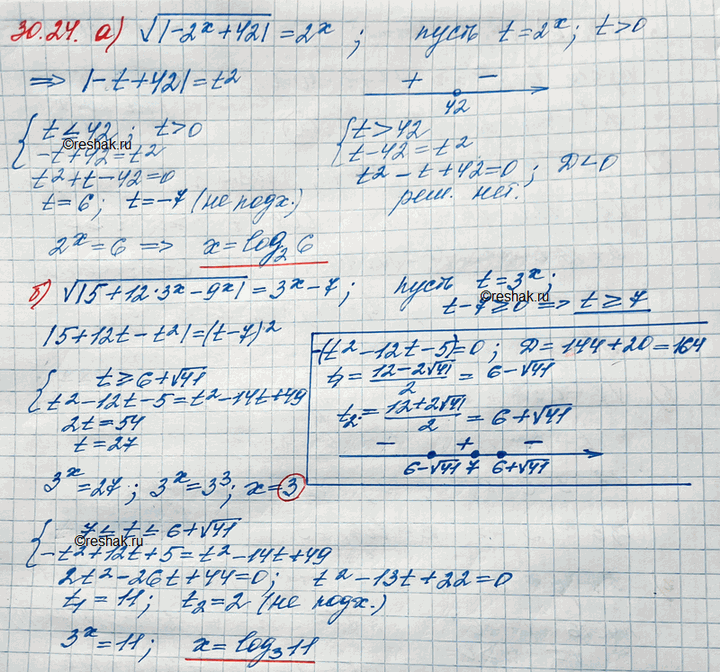 30.24. а) √|-2ˣ+42| = 2ˣ ; пусть t=2ˣ; t>0
⇒ |-t+42|=t²
+ −
42
{ t ≤ 42 ; t>0
-t+42=t²
t²+t-42=0
t=6; t=-7 (не подх.)
{ t>42
t-42=t²
t²-t+42=0 ; D<0
реш. нет.
©reshak.ru
2ˣ=6 ⇒ x=log₂6
б) √|5+12·3ˣ-9ˣ| = 3ˣ-7 ; пусть t=3ˣ;
t-7≥0 ⇒ t≥7
©reshak.ru
|5+12t-t²|=(t-7)²
-(t²-12t-5)=0 ; D=144+20=164
t₁=(12-2√41)/2 = 6-√41
t₂=(12+2√41)/2 = 6+√41
− + −
6-√41 7 6+√41
{ t≥6+√41
t²-12t-5=t²-14t+49
2t=54
t=27
3ˣ=27 ; 3ˣ=3³; x=3
{ 7≤t≤6+√41
©reshak.ru
-t²+12t+5=t²-14t+49
2t²-26t+44=0; t²-13t+22=0
t₁=11; t₂=2 (не подх.)
3ˣ=11; x=log₃11